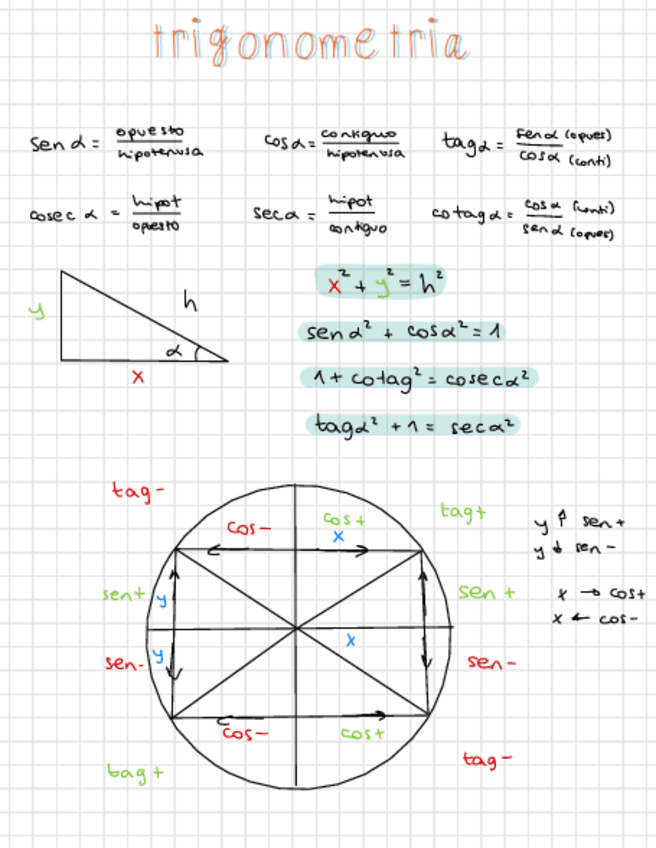 trigonometria
sen α = opuesto / hipotenusa   cos α = contiguo / hipotenusa   tag α = sen α (opues) / cos α (conti)
cosec α = hipot / opuesto   sec α = hipot / contiguo   cotag α = cos α (conti) / sen α (opues)
y h α x
x² + y² = h²
sen α² + cos α² = 1
1 + cotag² = cosec α²
tag α² + 1 = sec α²
tag- tag+
cos- cos+
x
y ↑ sen+
y ↓ sen-
sen+ y sen+
x → cos+
x ← cos-
y x
sen- sen-
cos- cos+
tag+ tag-